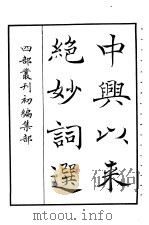 中興以来
絶妙詞選
四部叢刊初編集部
www.mtoou.info